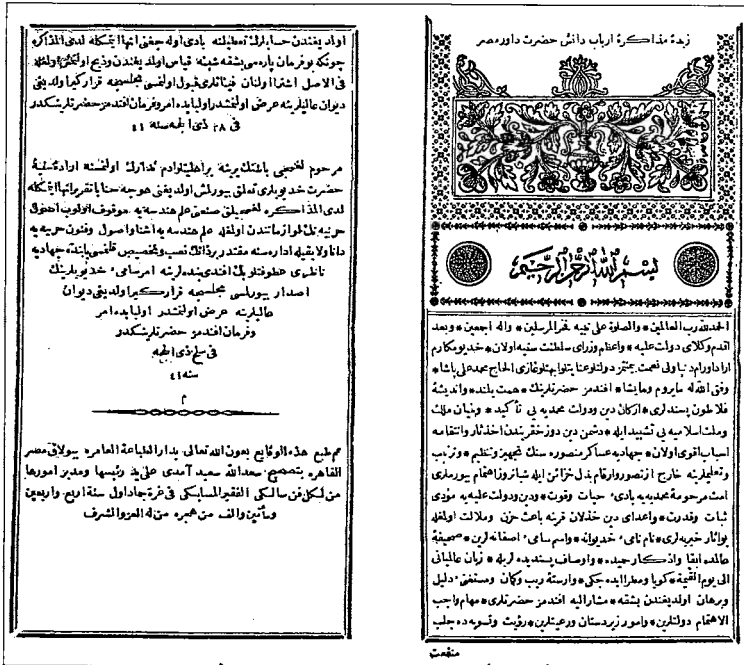 زبدهٔ مذاكرهٔ ارباب دانش حضرت داور مصر
بسم الله الرحمن الرحيم
الحمد لله رب العالمين * والصلوة على نبيه فخر المرسلين * واله اجمعين * وبعد
اقدم وكلاى دولت عليه * واعظم وزراى سلطنت سنيه اولان * خديو مكارم
الحاج محمد على باشا *
افندمز حضرتلرينك * همت بلند * وانديشهٔ
فلاطون پسندلرى * اركان دين ودولت محمديه يى تأكيد * وبنيان ملك
وملت اسلاميه يى تشييد ايله * دشمن دين دوزخ قريندن اخذ ثار وانتقامه
اسباب اقوى اولان * جهاديه عساكر منصوره سنك تجهيز وتنظيم * وترتيب
وتعليملرينه خارج از تصور وارقام بذل خزائن ايله شبانروز اهتمام بيورملرى
امت مرحومهٔ محمديه يه بادىء حيات وقوت * ودين ودولت عليه يه مؤدى
ثبات وقدرت * واعداى دين خذلان قرينه باعث حزن وملالت اولمغله
بو آثار خيريه لرى * نام نامىء خديوانه * واسم سامىء اصفانه لرين * صحيفهٔ
عالمده ابقا واذكار حميده * واوصاف پسنديده لريله * زبان عالميانى
الى يوم القيمة * كويا ومعطر ايده جكى * وارستهٔ ريب وكمان ومستغنىء دليل
وبرهان اولديغندن بشقه * مشار اليه افندمز حضرتلرى * مهام واجب
الاهتمام دولتلرين * وامور زيردستان ورعيتلرين * رؤيت وتسويه ده جلب
منفعت
اولديغندن حسابلرك تعطيلنه بادى اوله جغنى انها ايتمكله لدى المذاكره
چونكه بو فرمان پاره سى بشقه شيئه قياس اولنديغندن
فى الاصل اشترا اولنان فيئاتلرى قبول اولنمسى مجلسجه قراركير اولديغى
ديوان عاليلرينه عرض اولنمشدر اولبابده امر وفرمان افندمز حضرتلرينكدر
فى ٢٨ ذى الحجه سنه ٤١
حضرت خديويلرى تعلق بيورلمش اولديغى خوجه حنا يا تقرير انها ايتمكله
لدى المذاكره تحصيلى صنعتى علم هندسه يه موقوف اولوب احوال
حربيه نك لوازماتندن اولمغله علم هندسه يه اشنا واصول وفنون حربيه يه
دانا ولايقيله اداره سنه مقتدر بر ذاتك نصب وتخصيص قلنمسى بابنده جهاديه
ناظرى عطوفتلو بك افندى بنده لرينه امر سامىء خديويلرينك
اصدار بيورلمسى مجلسجه قراركير اولديغى ديوان
عاليلرينه عرض اولنمشدر اولبابده امر
وفرمان افندمز حضرتلرينكدر
فى سلخ ذى الحجه
سنه ٤١
م
تم طبع هذه الوقايع بعون الله تعالى بدار الطباعة العامره ببولاق مصر
القاهره بتصحيح سعد الله سعيد آمدى على يد رئيسها ومدير امورها
من لكل فن سالكى الفقير المسابكى فى غرة جمادى الاول سنة اربع واربعين
ومأتين والف من هجرة من له العز والشرف